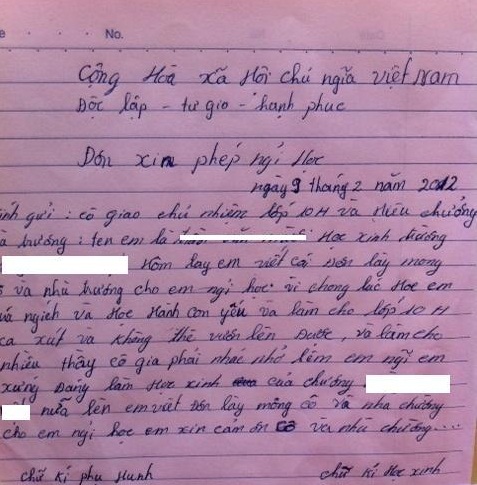 No.
Cộng Hòa xã Hội chủ ngĩa việt Nam
Độc lập - tự gio - hạnh phúc
Đơn xin phép ngỉ Học
ngày 9 tháng 2 năm 2012
ính gửi : cô giao chủ nhiệm lớp 10 H và Hiêu chưởng
à trường : ten em là Học xinh trường
Hôm lay em viết cái Đơn lày mong
ô và nhà trường cho em ngỉ học vì chong lúc Học em
uá ngịch và Học Hành con yếu và làm cho lớp 10 H
ca xút và không thể vươn lên Được, và làm cho
nhiều thầy cô gia phải nhac nhở lêm em ngĩ em
xưng Đáng làm Học xinh của chường
nữa lên em viết đơn lày mông cô và nha chường
cho em ngỉ học em xin cảm ơn cô và nhà chường...
chữ kí phụ Hunh chữ kí Học xinh